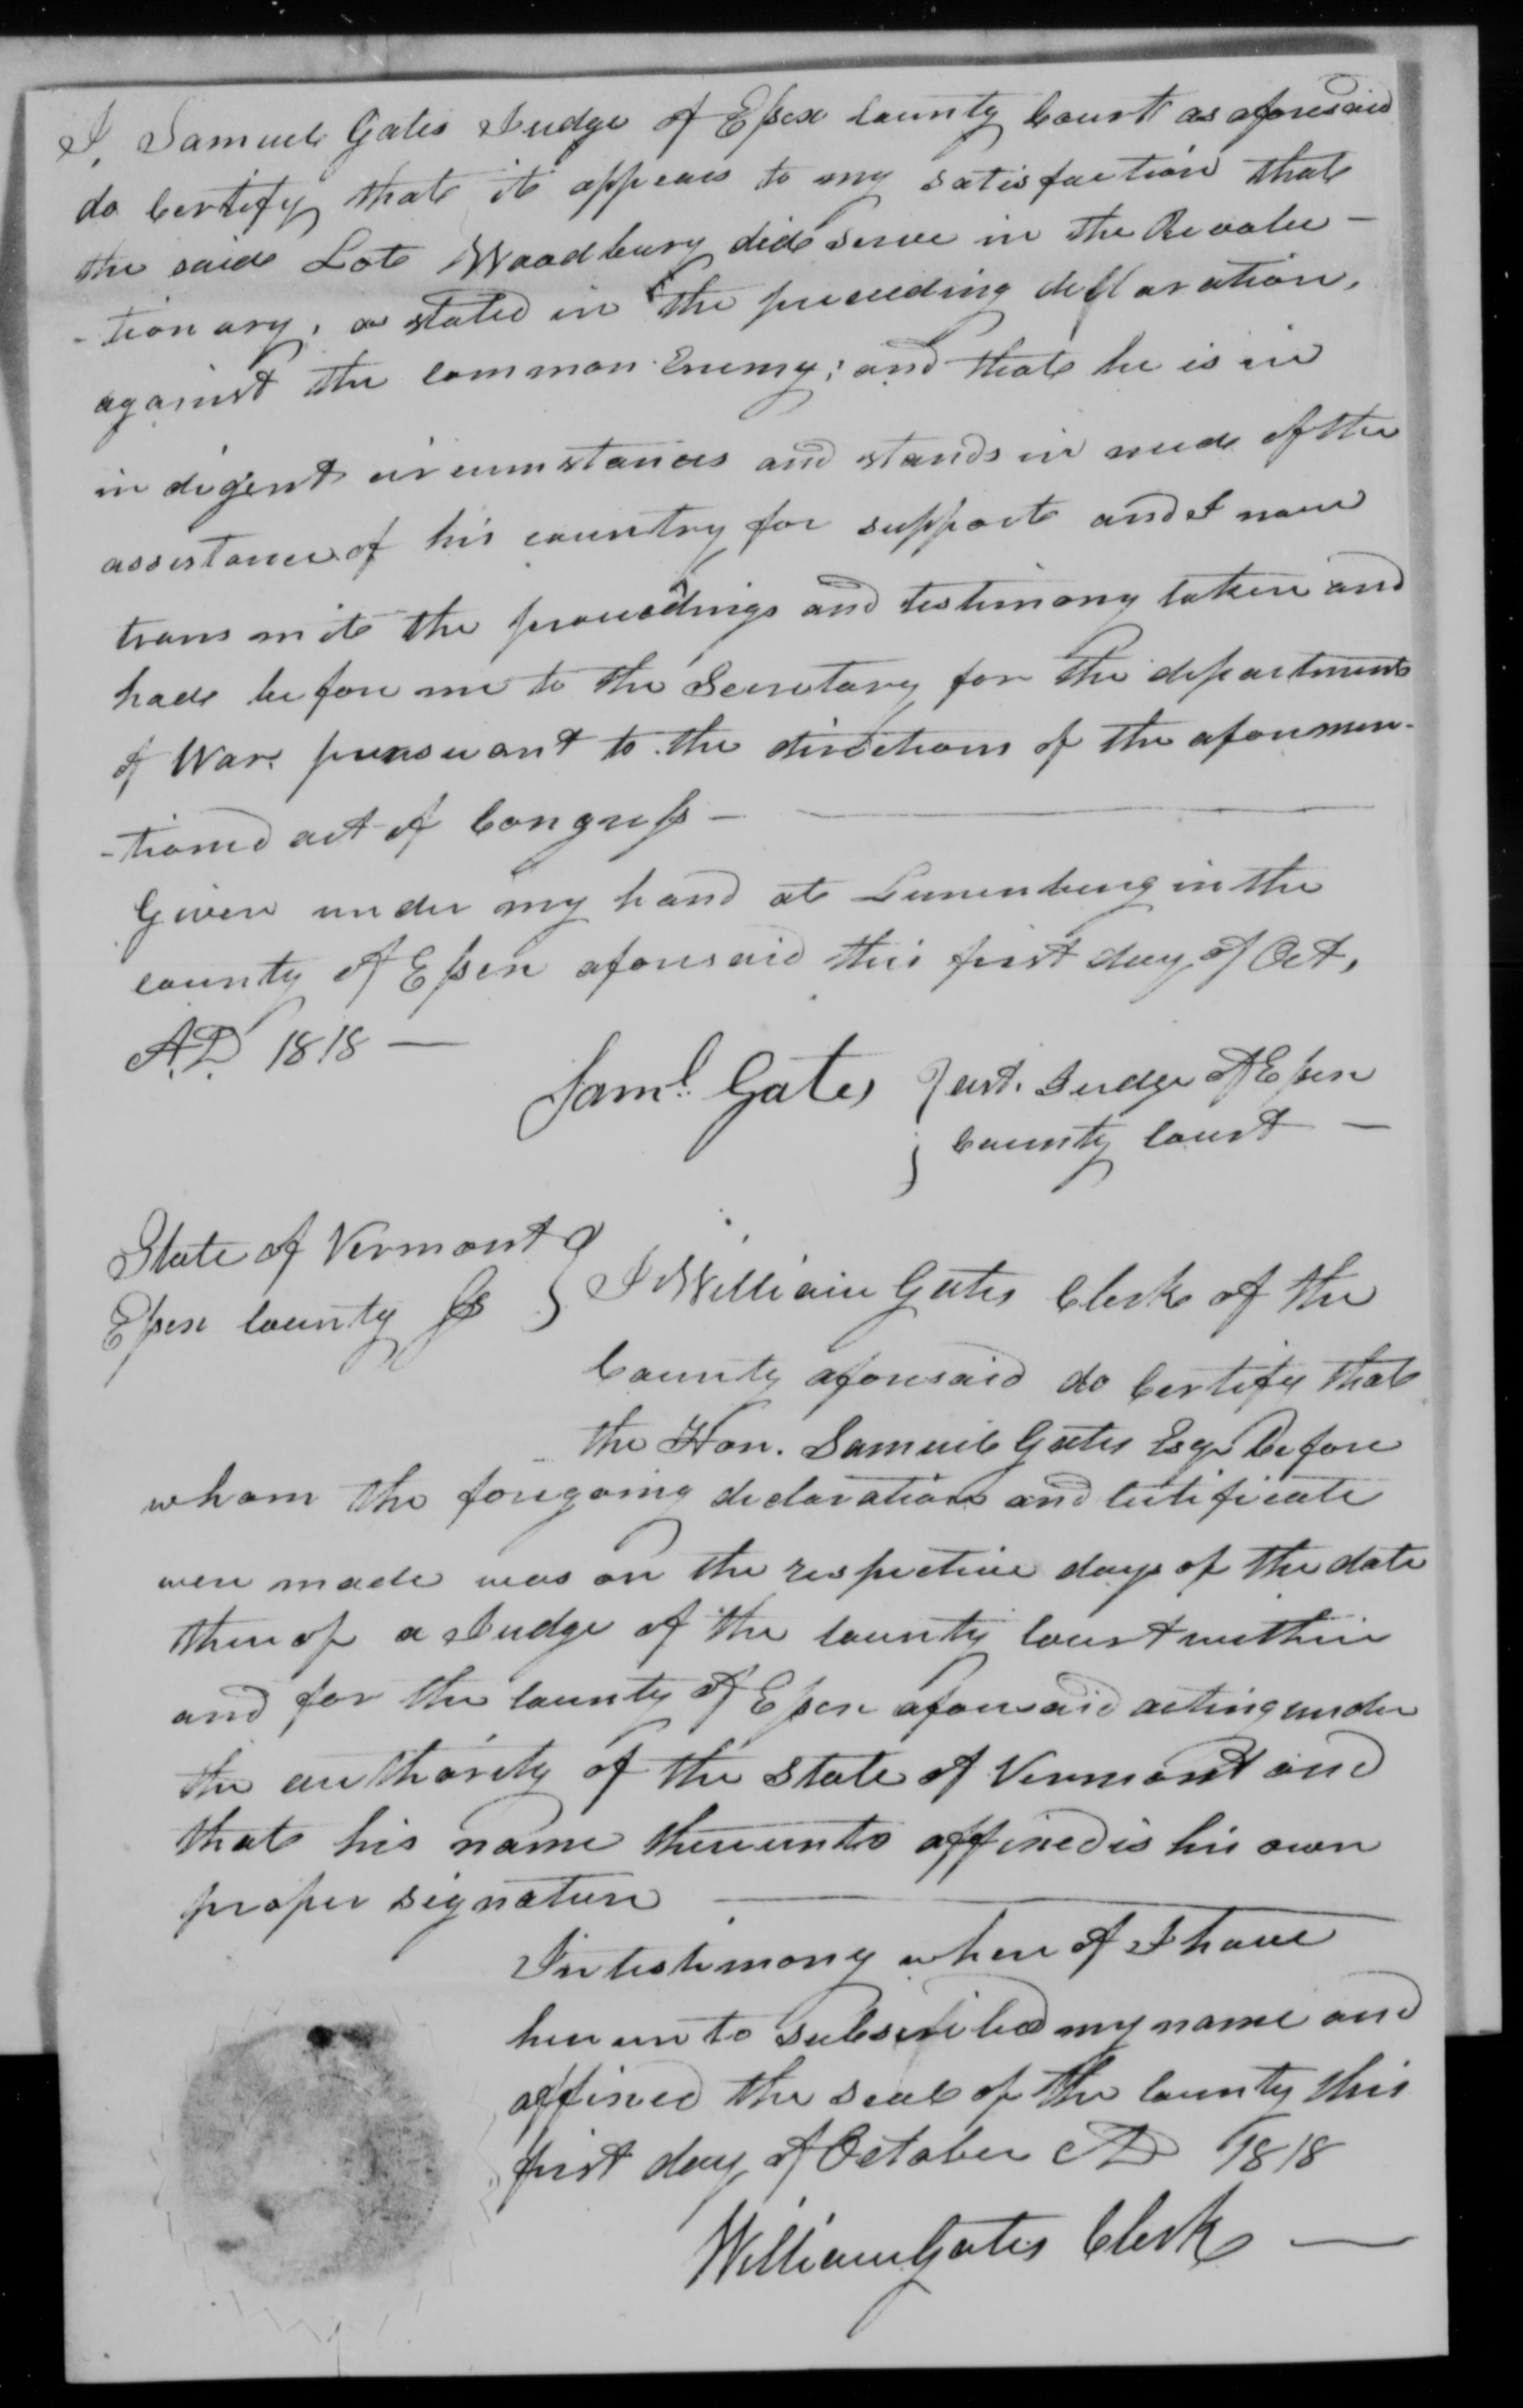 I, Samuel Gates Judge of Essex County Court as aforesaid
do Certify that it appears to my satisfaction that
the said Lot Woodbury did serve in the Revolu-
-tionary, as stated in the preceeding decllaration,
against the common Enemy; and that he is in
indigent circumstances and stands in need of the
assistance of his country for support and I now
transmit the proceedings and testimony taken and
had before me to the Secretary for the department
of War pursuant to the directions of the aforemen-
-tioned act of Congress —
Given under my hand at Lunenburg in the
county of Essex aforesaid this first day of Oct,
A.D. 1818 —
Saml. Gates } asst. Judge of Essex
} County Court —
State of Vermont }
Essex County Ss } I William Gates Clerk of the
County aforesaid do Certify that
the Hon. Samuel Gates Esqr before
whom the foregoing declaration and certificate
were made was on the respective days of the date
thereof a Judge of the County Court within
and for the County of Essex aforesaid acting under
the authority of the State of Vermont and
that his name thereunto affixed is his own
proper signature
In testimony where of I have
hereunto subscribed my name and
affixed the seal of the County this
first day of October AD 1818
William Gates Clerk —